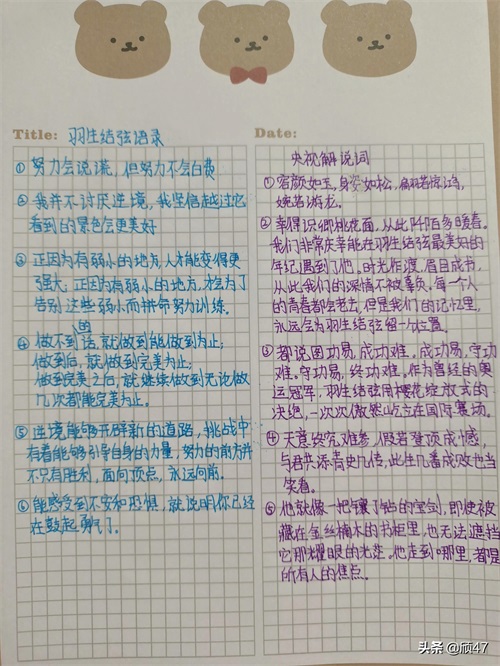 Title: 羽生结弦语录
① 努力会说谎，但努力不会白费
② 我并不讨厌逆境，我坚信越过它
看到的景色会更美好
③ 正因为有弱小的地方，人才能变得更
强大，正因为有弱小的地方，才会为了
告别这些弱小而拼命努力训练。
④ 做不到的话，就做到能做到为止；
做到后，就做到完美为止；
做到完美之后，就继续做到无论做
几次都能完美为止。
⑤ 逆境能够开辟新的道路，挑战中
有着能够引导自身的力量，努力的前方并
不只有胜利，面向顶点，永远向前。
⑥ 能感受到不安和恐惧，就说明你已经
在鼓起勇气了。
Date:
央视解说词
① 容颜如玉，身姿如松，翩若惊鸿，
婉若游龙。
② 幸得识卿桃花面，从此阡陌多暖春。
我们非常庆幸能在羽生结弦最美好的
年纪遇到了他。时光作渡，眉目成书，
从此我们的深情不被辜负。每一个人
的青春都会老去，但是我们的记忆里，
永远会为羽生结弦留一个位置
③ 都说图功易，成功难，成功易，守功
难。守功易，终功难，作为曾经的奥
运冠军，羽生结弦用樱花绽放式的
决绝，一次次傲然屹立在国际赛场。
④ 天意终究难参，假若登顶成憾，
与君共添青史几传，此生几番成败也当
笑看。
⑤ 他就像一把镶了钻的宝剑，即使被
藏在金丝楠木的书柜里，也无法遮挡
它那耀眼的光芒。他走到哪里，都是
所有人的焦点。
头条 @颀47